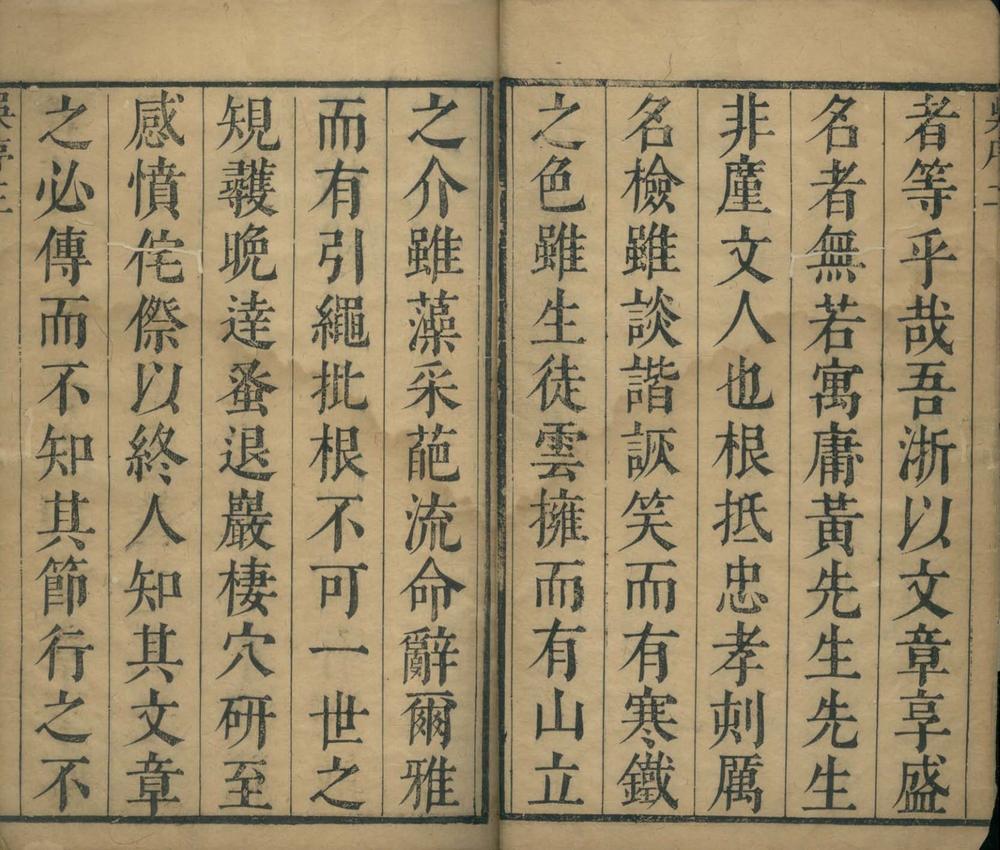 者等乎哉吾浙以文章享盛
名者無若寓庸黃先生先生
非廑文人也根抵忠孝刻厲
名檢雖談諧詼笑而有寒鐵
之色雖生徒雲擁而有山立
之介雖藻采葩流命辭爾雅
而有引繩批根不可一世之
規蠖晚達蚤退嚴棲穴研至
感憤侘傺以終人知其文章
之必傳而不知其節行之不